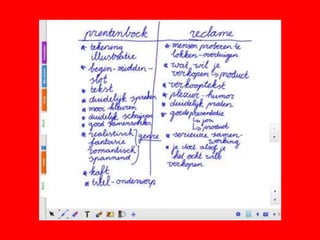 prentenboek
* tekening
illustratie
* begin-midden-
slot
* tekst
* duidelijk spreken
* mooi kleuren
* duidelijk schrijven
* goed samenwerken
* realistisch
fantasie
romantisch
spannend
genre
* kaft
* titel-onderwerp
reclame
* mensen proberen te
lokken-overtuigen
* wat wil je
verkopen → product
* verkooptekst
* plezier-humor
* duidelijk praten
* goede presentatie
↳ jou
↳ product
* serieuze samen-
werking
* je doet alsof je
het echt wilt
verkopen.